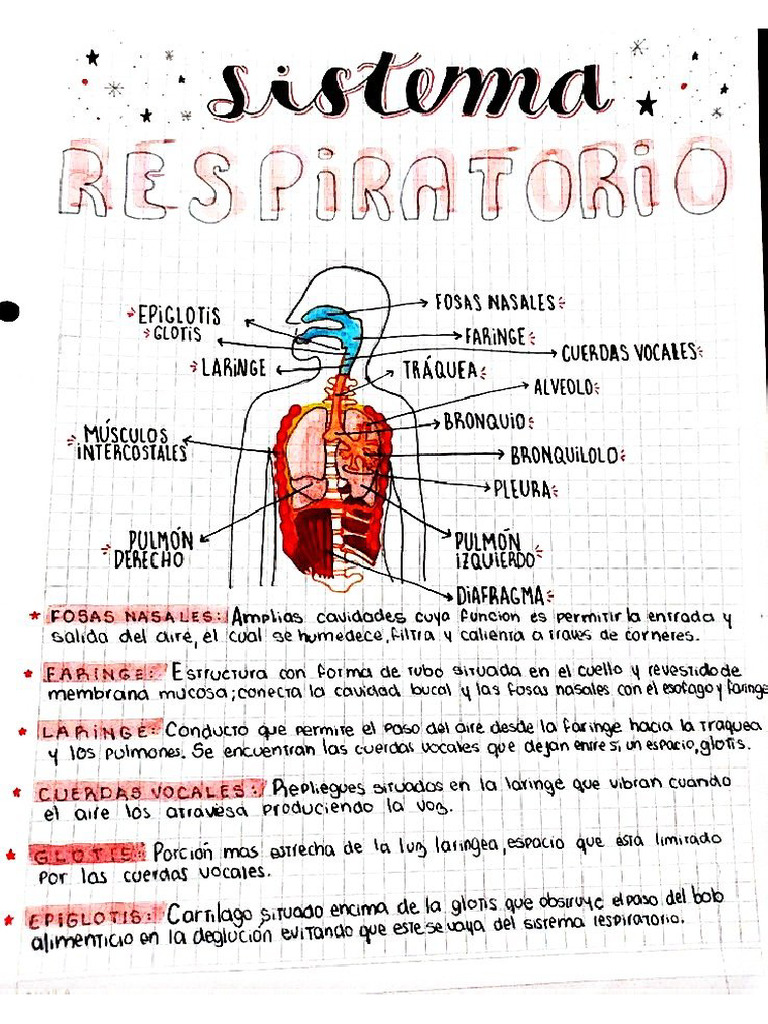 Sistema
RESPIRATORIO
EPIGLOTIS
GLOTIS
LARINGE
MÚSCULOS
INTERCOSTALES
PULMÓN
DERECHO
FOSAS NASALES
FARINGE
CUERDAS VOCALES
TRÁQUEA
ALVEOLO
BRONQUIO
BRONQUILOLO
PLEURA
PULMÓN
IZQUIERDO
DIAFRAGMA
* FOSAS NASALES: Amplias cavidades cuya funcion es permitir la entrada y
salida del aire, el cual se humedece, filtra y calienta a traves de corneres.
* FARINGE: Estructura con forma de tubo situada en el cuello y revestido de
membrana mucosa; conecta la cavidad bucal y las fosas nasales con el esofago y faringe
* LARINGE: Conducto que permite el paso del aire desde la faringe hacia la traquea
y los pulmones. Se encuentran las cuerdas vocales que dejan entre si, un espacio, glotis.
* CUERDAS VOCALES: Repliegues situados en la laringe que vibran cuando
el aire los atravesa produciendo la voz.
* GLOTIS: Porción mas estrecha de la luz laringea, espacio que esta limitado
por las cuerdas vocales.
* EPIGLOTIS: Cartilago situado encima de la glotis que obstruye el paso del bolo
alimenticio en la deglución evitando que este se vaya del sistema respiratorio.